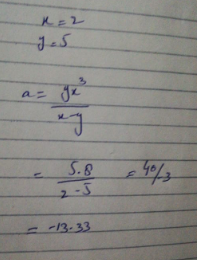 x=2
y=5
a= yx³
x-y
= 5.8 = 40/-3
2-5
= -13.33